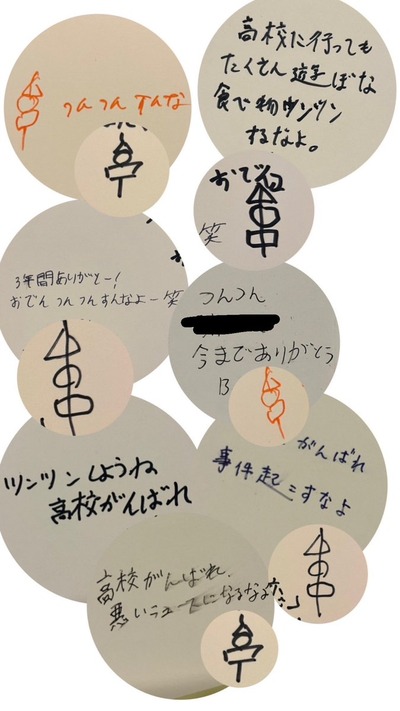 つんつん すんな
高校に行っても
たくさん遊ぼな
食べ物ツンツン
するなよ。
おでん
笑
3年間ありがとー!
おでん つんつんすんなよー笑
つんつん
今までありがとう
B
ツンツンしようね
高校がんばれ
がんばれ
事件起こすなよ
高校がんばれ、
悪いニュースになるなよ